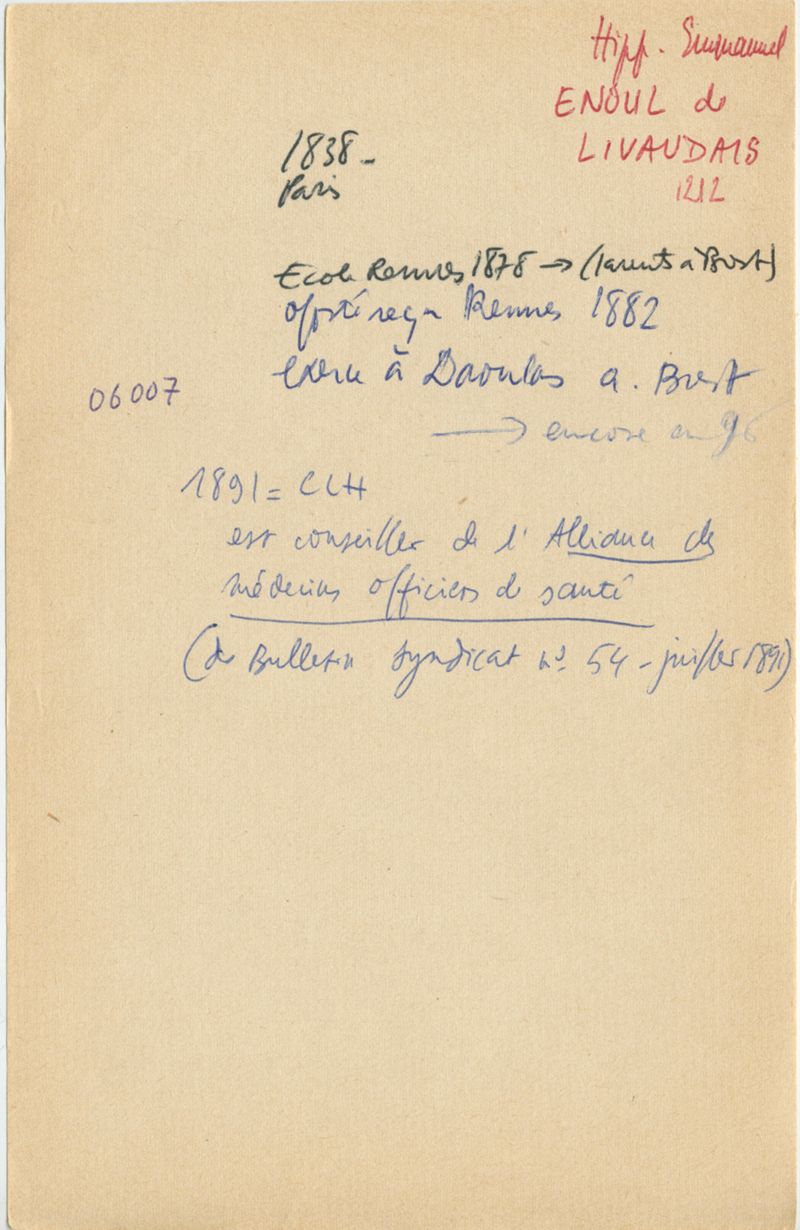 Hipp. Emmanuel
ENOUL de
LIVAUDAIS
1212
1838 -
Paris
Ecole Rennes 1878 → (Parents à Brest)
offsté reçu Rennes 1882
exerce à Daoulas a. Brest
06007
→ encore en 96
1891 = CLH
est conseiller de l'Alliance des
médecins officiers de santé
(ds Bulletin Syndicat n° 54 - juillet 1891)